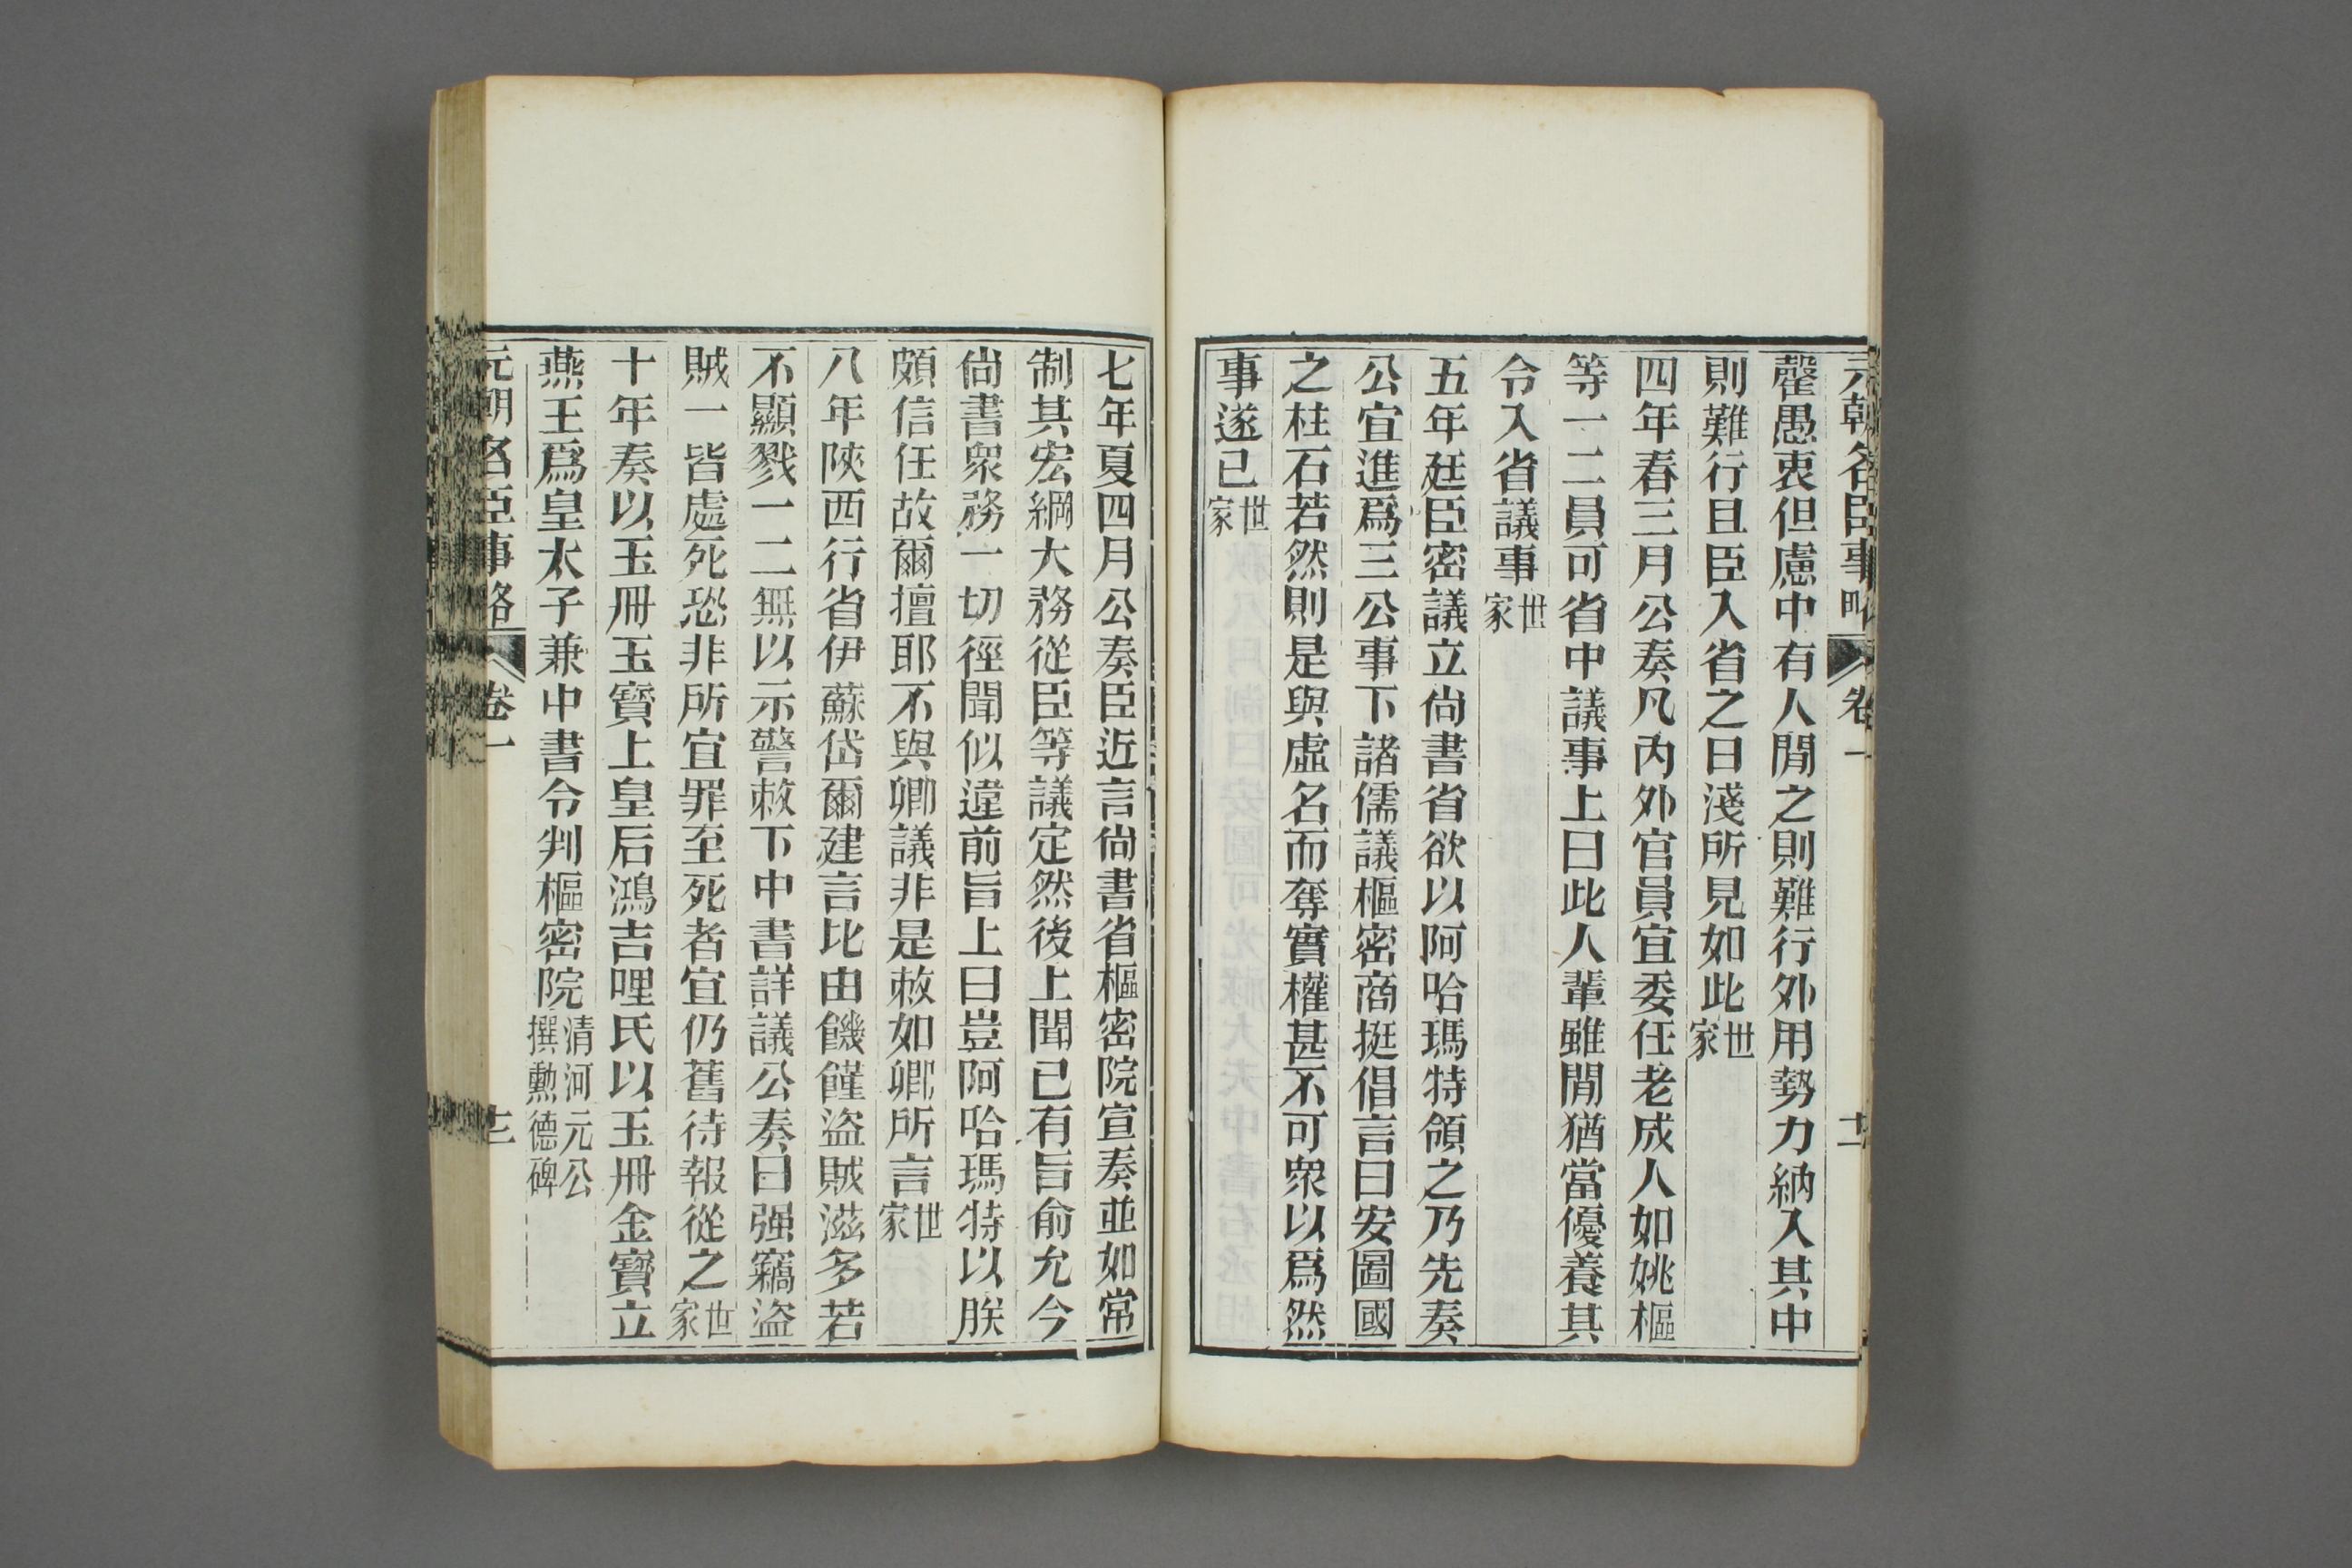 元朝名臣事略 卷一 十二
罄愚衷但慮中有人閒之則難行外用勢力納入其中
則難行且臣入省之日淺所見如此世家
四年春三月公奏凡內外官員宜委任老成人如姚樞
等一二員可省中議事上曰此人輩雖閒猶當優養其
令入省議事世家
五年廷臣密議立尙書省欲以阿哈瑪特領之乃先奏
公宜進爲三公事下諸儒議樞密商挺倡言曰安圖國
之柱石若然則是與虛名而奪實權甚不可衆以爲然
事遂已世家
七年夏四月公奏臣近言尙書省樞密院宣奏並如常
制其宏綱大務從臣等議定然後上聞已有旨俞允今
尙書衆務一切徑聞似違前旨上曰豈阿哈瑪特以朕
頗信任故爾擅耶不與卿議非是敕如卿所言世家
八年陝西行省伊蘇岱爾建言比由饑饉盜賊滋多若
不顯戮一二無以示警敕下中書詳議公奏曰强竊盜
賊一皆處死恐非所宜罪至死者宜仍舊待報從之世家
十年奏以玉冊玉寶上皇后鴻吉哩氏以玉冊金寶立
燕王爲皇太子兼中書令判樞密院清河元公撰勲德碑
元朝名臣事略 卷一